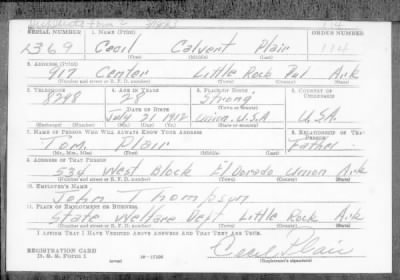 SERIAL NUMBER 1. NAME (Print) ORDER NUMBER
2369 Cecil Calvert Plair 114
(First) (Middle) (Last)
2. ADDRESS (Print)
917 Center Little Rock Pul Ark
(Number and street or R. F. D. number) (Town) (County) (State)
3. TELEPHONE 4. AGE IN YEARS 5. PLACE OF BIRTH 6. COUNTRY OF CITIZENSHIP
8298 28 Strong
DATE OF BIRTH (Town or county)
July 21 1912 Union, U.S.A U.S.A.
(Mo.) (Day) (Yr.) (State or country)
7. NAME OF PERSON WHO WILL ALWAYS KNOW YOUR ADDRESS 8. RELATIONSHIP OF THAT PERSON
Tom Plair Father
(Mr., Mrs., Miss) (First) (Middle) (Last)
9. ADDRESS OF THAT PERSON
534 West Block El Dorado Union Ark
(Number and street or R. F. D. number) (Town) (County) (State)
10. EMPLOYER'S NAME
John Thompson
11. PLACE OF EMPLOYMENT OR BUSINESS
State Welfare Dept Little Rock Ark
(Number and street or R. F. D. number) (Town) (County) (State)
I AFFIRM THAT I HAVE VERIFIED ABOVE ANSWERS AND THAT THEY ARE TRUE.
REGISTRATION CARD
D. S. S. Form 1 Cecil Plair
(Registrant's signature)